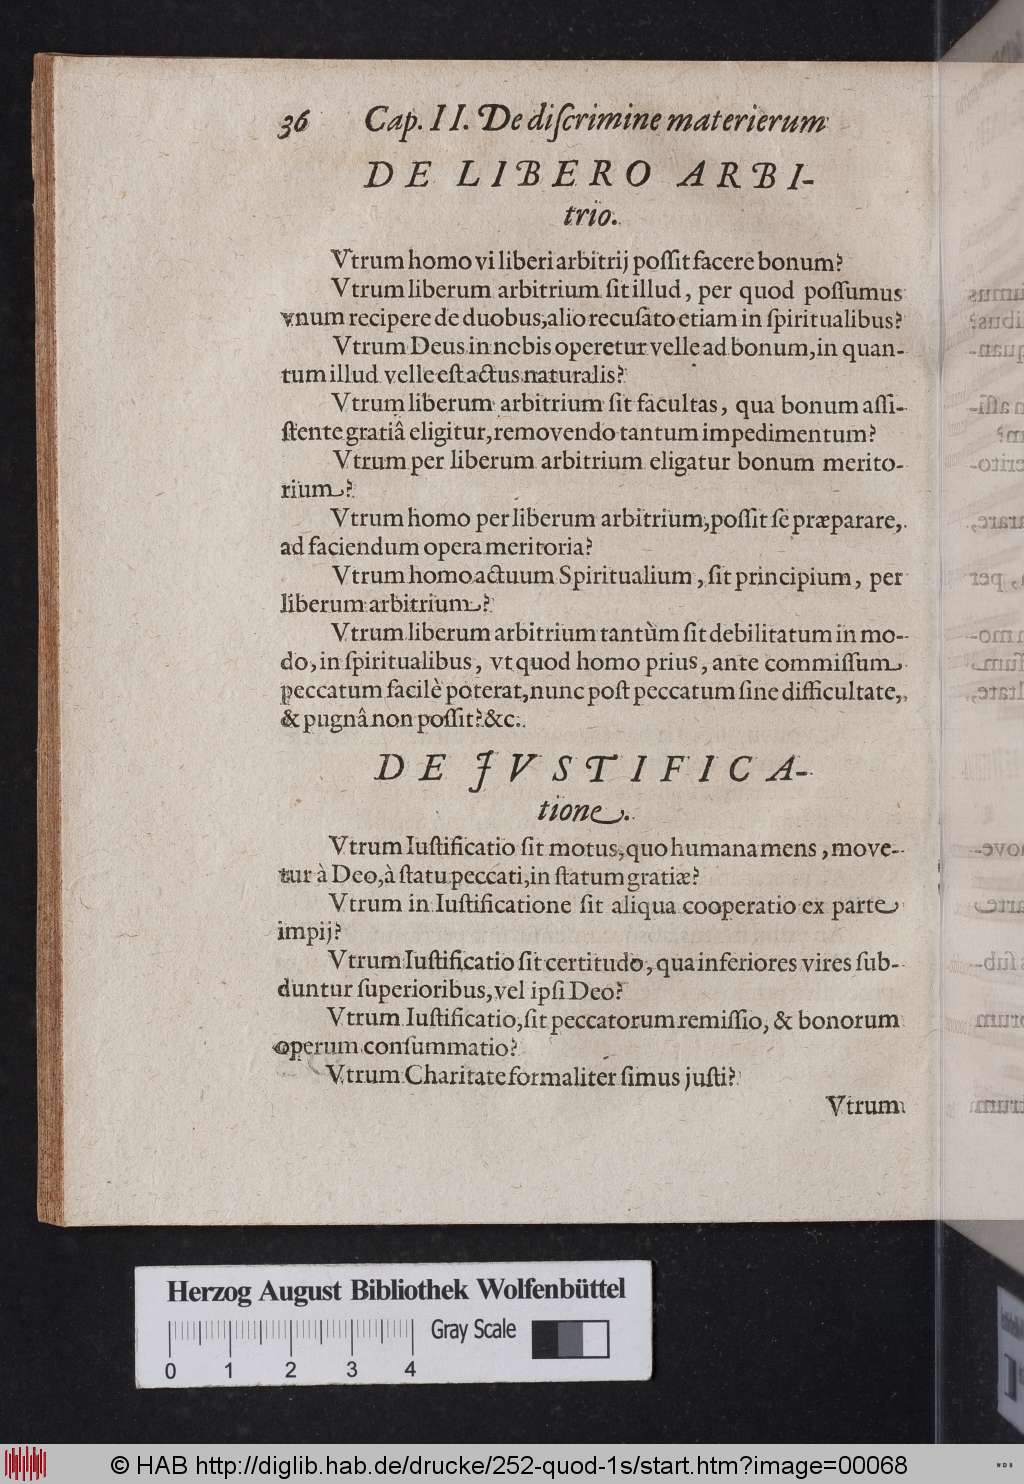 36 Cap. II. De diſcrimine materierum
DE LIBERO ARBI-
trio.
Vtrum homo vi liberi arbitrij poſſit facere bonum?
Vtrum liberum arbitrium ſit illud, per quod poſſumus
vnum recipere de duobus, alio recuſato etiam in ſpiritualibus?
Vtrum Deus in nobis operetur velle ad bonum, in quan-
tum illud velle eſt actus naturalis?
Vtrum liberum arbitrium ſit facultas, qua bonum aſſi-
ſtente gratiâ eligitur, removendo tantum impedimentum?
Vtrum per liberum arbitrium eligatur bonum merito-
rium?
Vtrum homo per liberum arbitrium, poſſit ſe præparare,
ad faciendum opera meritoria?
Vtrum homo actuum Spiritualium, ſit principium, per
liberum arbitrium?
Vtrum liberum arbitrium tantùm ſit debilitatum in mo-
do, in ſpiritualibus, vt quod homo prius, ante commiſſum
peccatum facilè poterat, nunc poſt peccatum ſine difficultate,
& pugnâ non poſſit? &c.
DE JVSTIFICA-
tione.
Vtrum Iuſtificatio ſit motus, quo humana mens, move-
tur à Deo, à ſtatu peccati, in ſtatum gratiæ?
Vtrum in Iuſtificatione ſit aliqua cooperatio ex parte
impij?
Vtrum Iuſtificatio ſit certitudo, qua inferiores vires ſub-
duntur ſuperioribus, vel ipſi Deo?
Vtrum Iuſtificatio, ſit peccatorum remiſſio, & bonorum
operum conſummatio?
Vtrum Charitate formaliter ſimus juſti?
Vtrum
Herzog August Bibliothek Wolfenbüttel
Gray Scale
0 1 2 3 4
© HAB http://diglib.hab.de/drucke/252-quod-1s/start.htm?image=00068